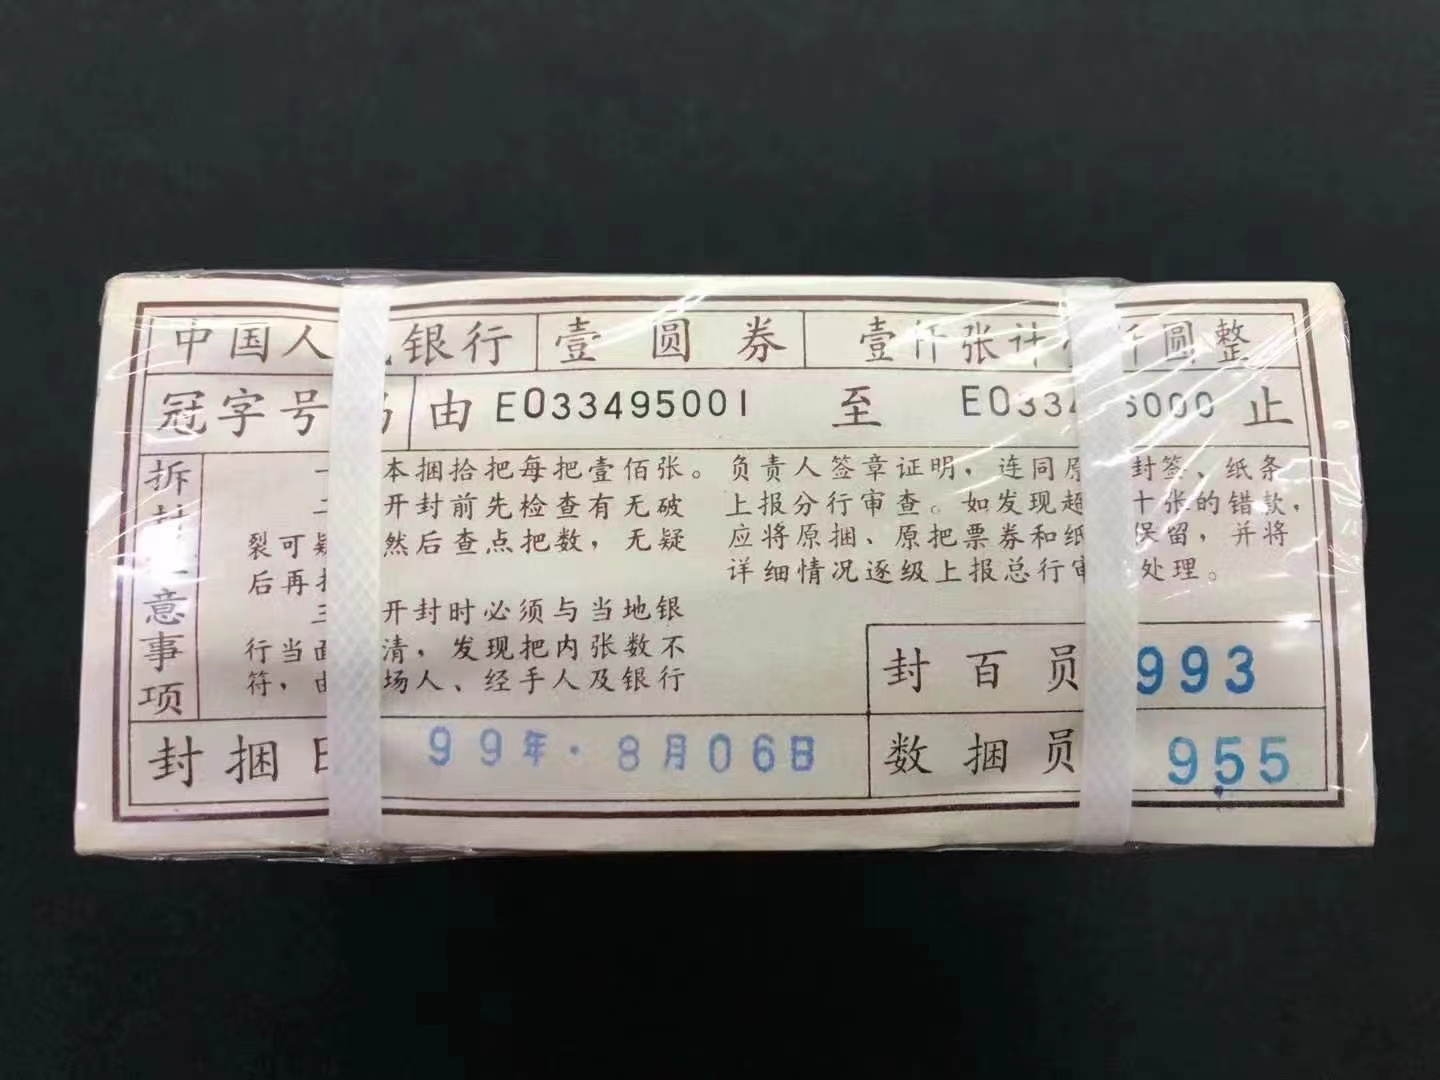 中国人 银行 壹圆券 壹仟张计 仟圆整
冠字号 由 E033495001 至 E033 5000 止
拆 意事项
一 本捆拾把每把壹佰张。
二 开封前先检查有无破
裂可疑 然后查点把数，无疑
后再
三 开封时必须与当地银
行当面 清，发现把内张数不
符，由 场人、经手人及银行
负责人签章证明，连同原 封签、纸条
上报分行审查。如发现超 十张的错款，
应将原捆、原把票券和纸 保留，并将
详细情况逐级上报总行审 处理。
封百员 993
封捆日 99年·8月06日
数捆员 955